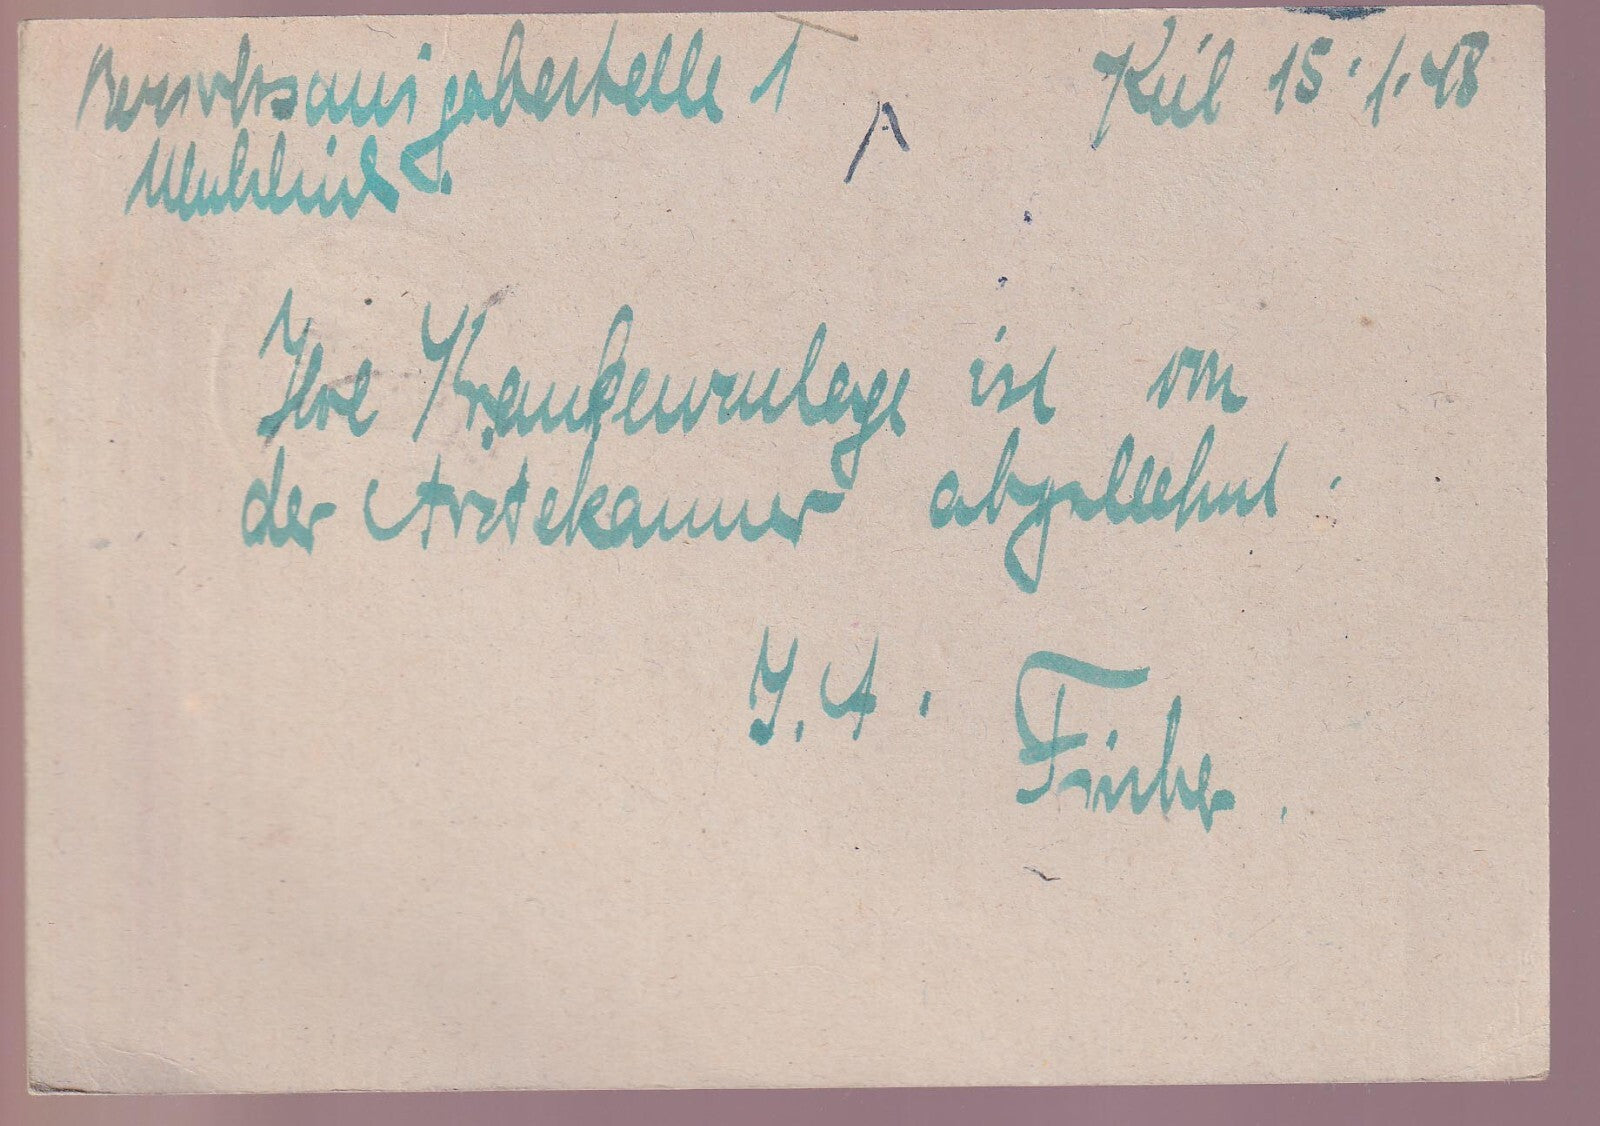 Bezugsausgabestelle 1 Kiel 15.1.48
A
Ihre Krankenzulage ist von
der Ärztekammer abgelehnt.
I.A.